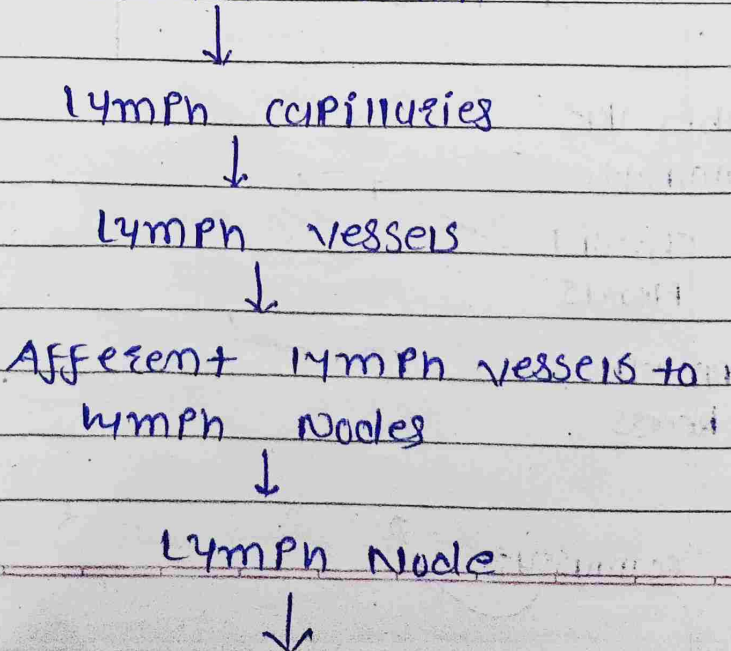 ↓
Lymph capillaries
↓
Lymph vessels
↓
Afferent lymph vessels to
lymph Nodes
↓
Lymph Node
↓